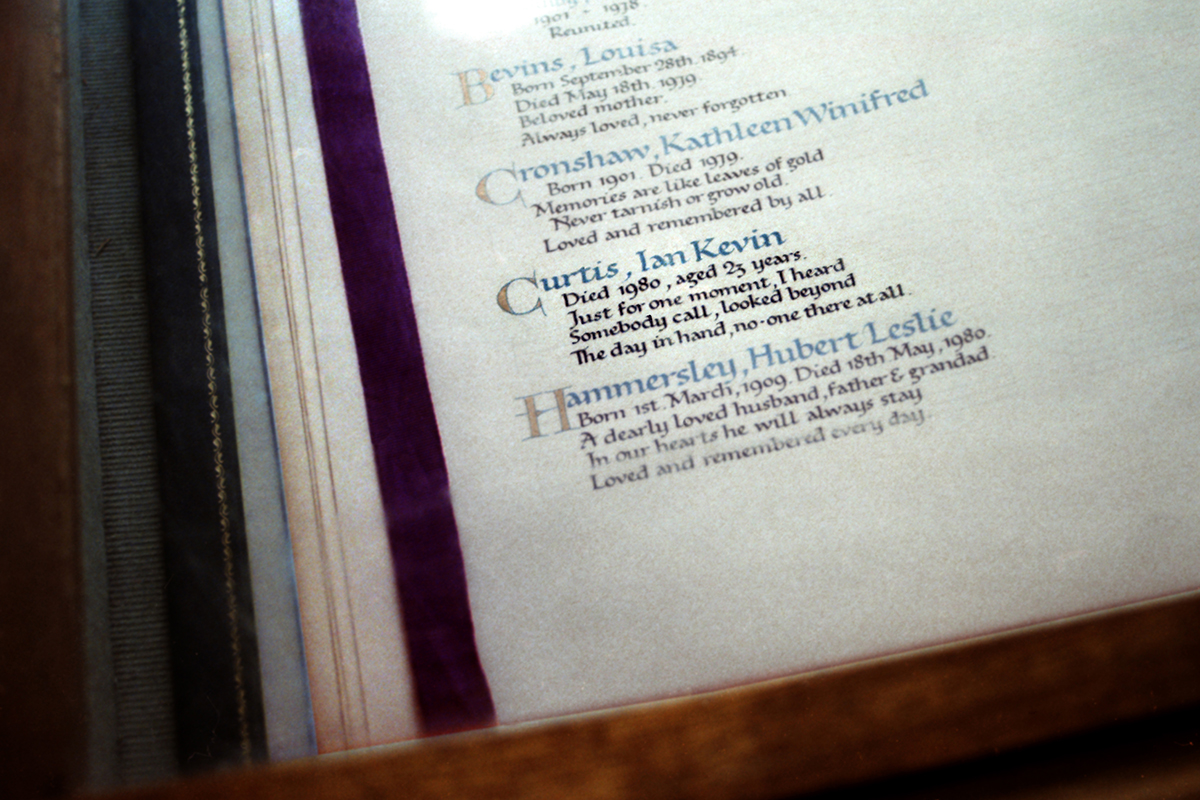 1901 - 1938.
Reunited.
Bevins, Louisa
Born September 28th. 1894.
Died May 18th. 1979.
Beloved mother.
Always loved, never forgotten.
Cronshaw, Kathleen Winifred
Born 1901. Died 1979.
Memories are like leaves of gold
Never tarnish or grow old.
Loved and remembered by all.
Curtis, Ian Kevin
Died 1980, aged 23 years.
Just for one moment, I heard
Somebody call, looked beyond
The day in hand, no-one there at all.
Hammersley, Hubert Leslie
Born 1st. March, 1909. Died 18th May, 1980.
A dearly loved husband, father & grandad.
In our hearts he will always stay
Loved and remembered every day.